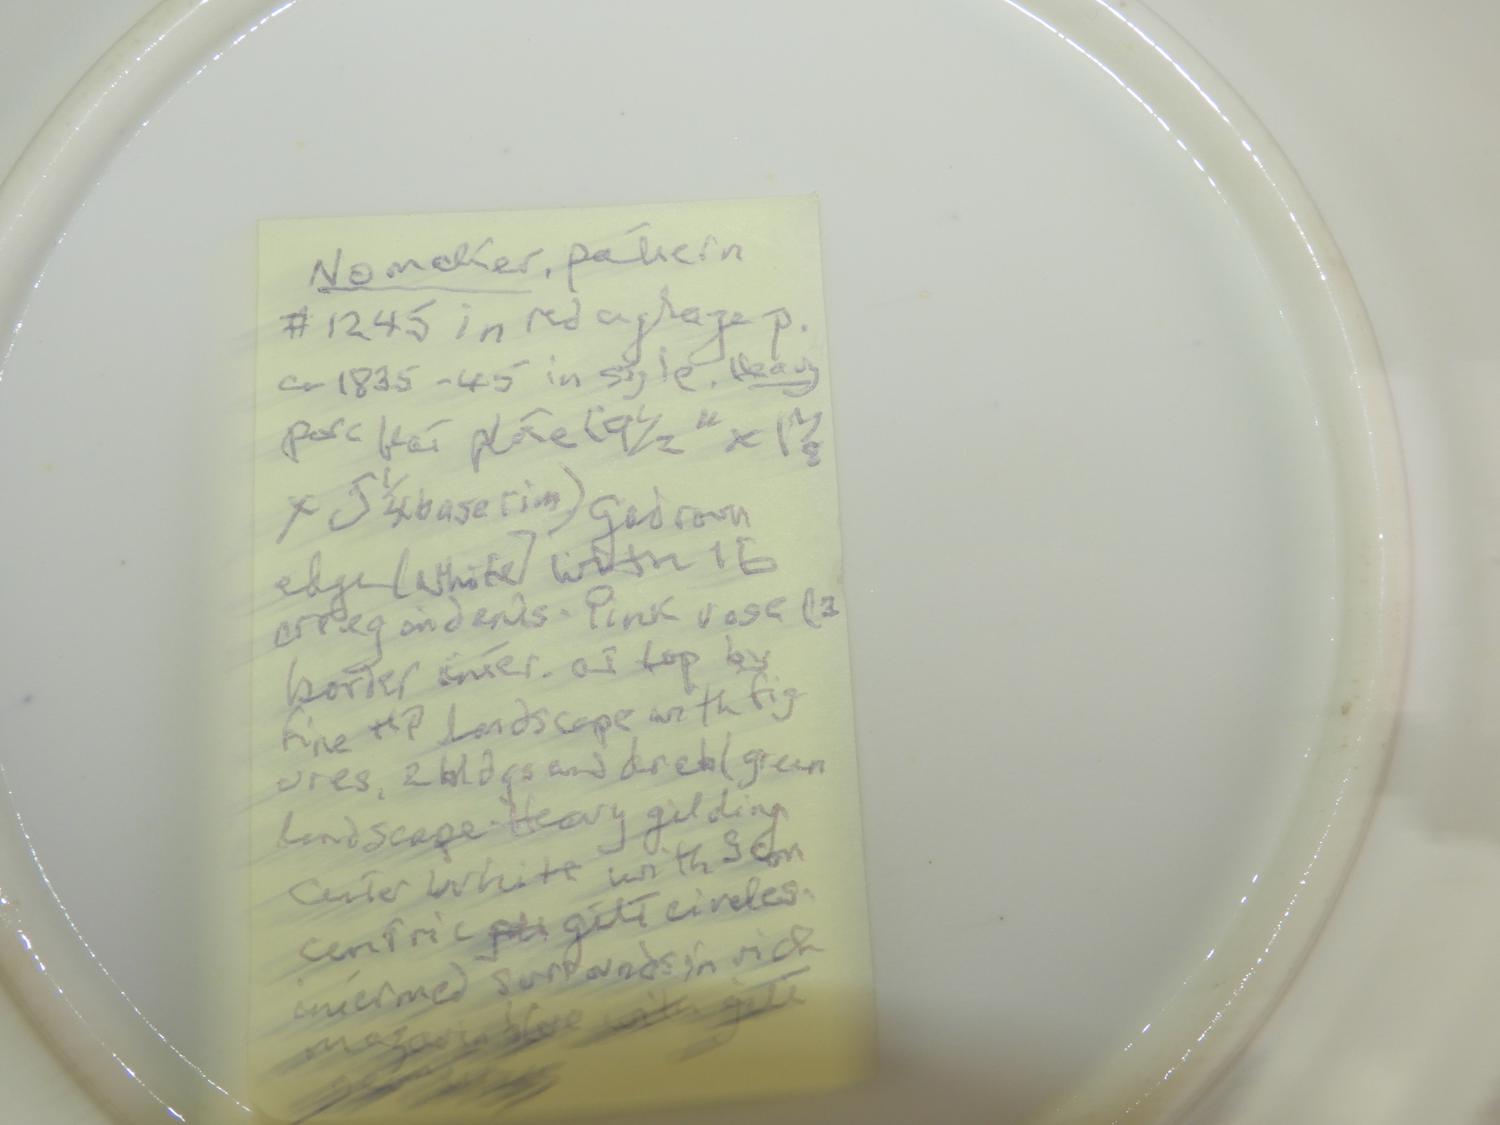 No maker, pattern
#1245 in red
ca 1835-45 in style. Heavy
porc plate (9 1/2" x 1 1/8
x 5 1/4 base rim) Gadroon
edge (white) with 16
indents. Pink rose (3
border inter. at top by
fine HP landscape with fig
ures, 2 bldgs and green
landscape. Heavy gilding
Center White with 3 con
centric gilt circles.
intermed surrounds in rich
mazarin blue with gilt